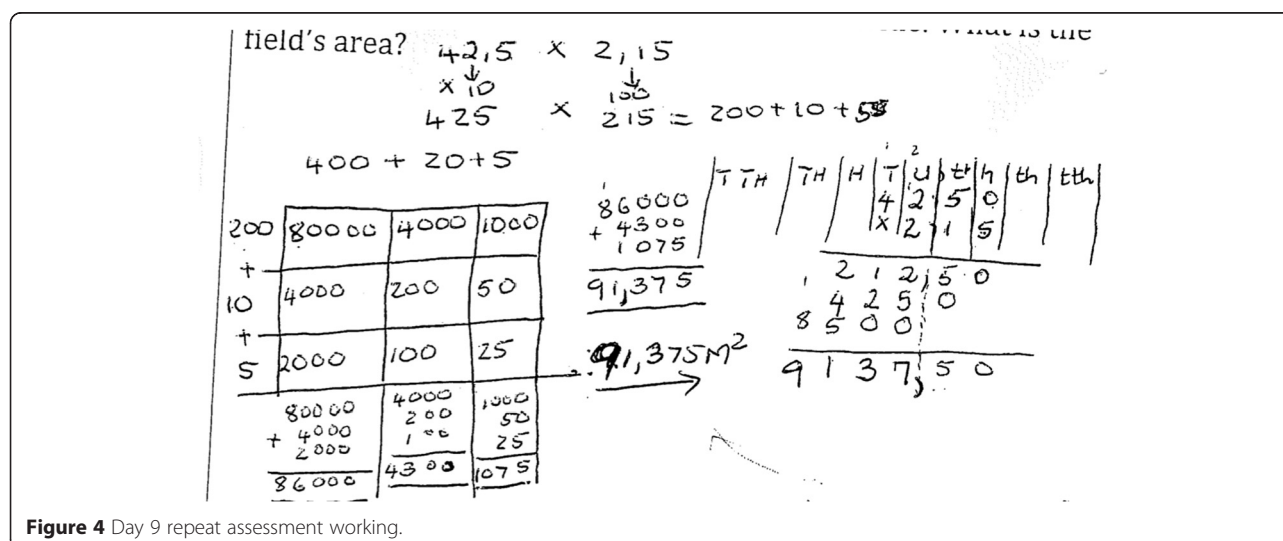 field's area? 42,5 × 2,15
What is the
× 10 100
425 × 215 = 200 + 10 + 5
400 + 20 + 5
200 80000 4000 1000
+
10 4000 200 50
+
5 2000 100 25
80000 4000 1000
+ 4000 200 50
2000 100 25
86000 4300 1075
86000
+ 4300
1075
91,375
91,375 M²
T TH TH H T U t h th tth
1 2
4 2 5 0
× 2 1 5
2 1 2,5 0
4 2 5 0
8 5 0 0
9 1 3 7,5 0
Figure 4 Day 9 repeat assessment working.